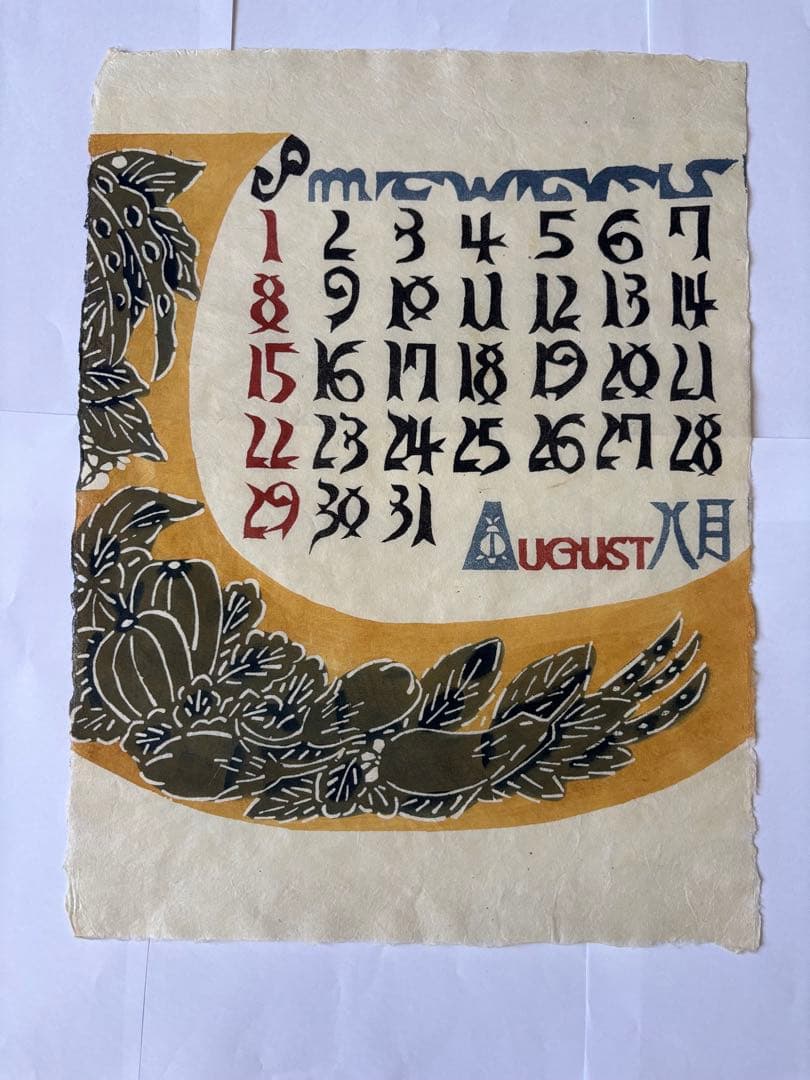 S M T W T F S
1 2 3 4 5 6 7
8 9 10 11 12 13 14
15 16 17 18 19 20 21
22 23 24 25 26 27 28
29 30 31
AUGUST 八月